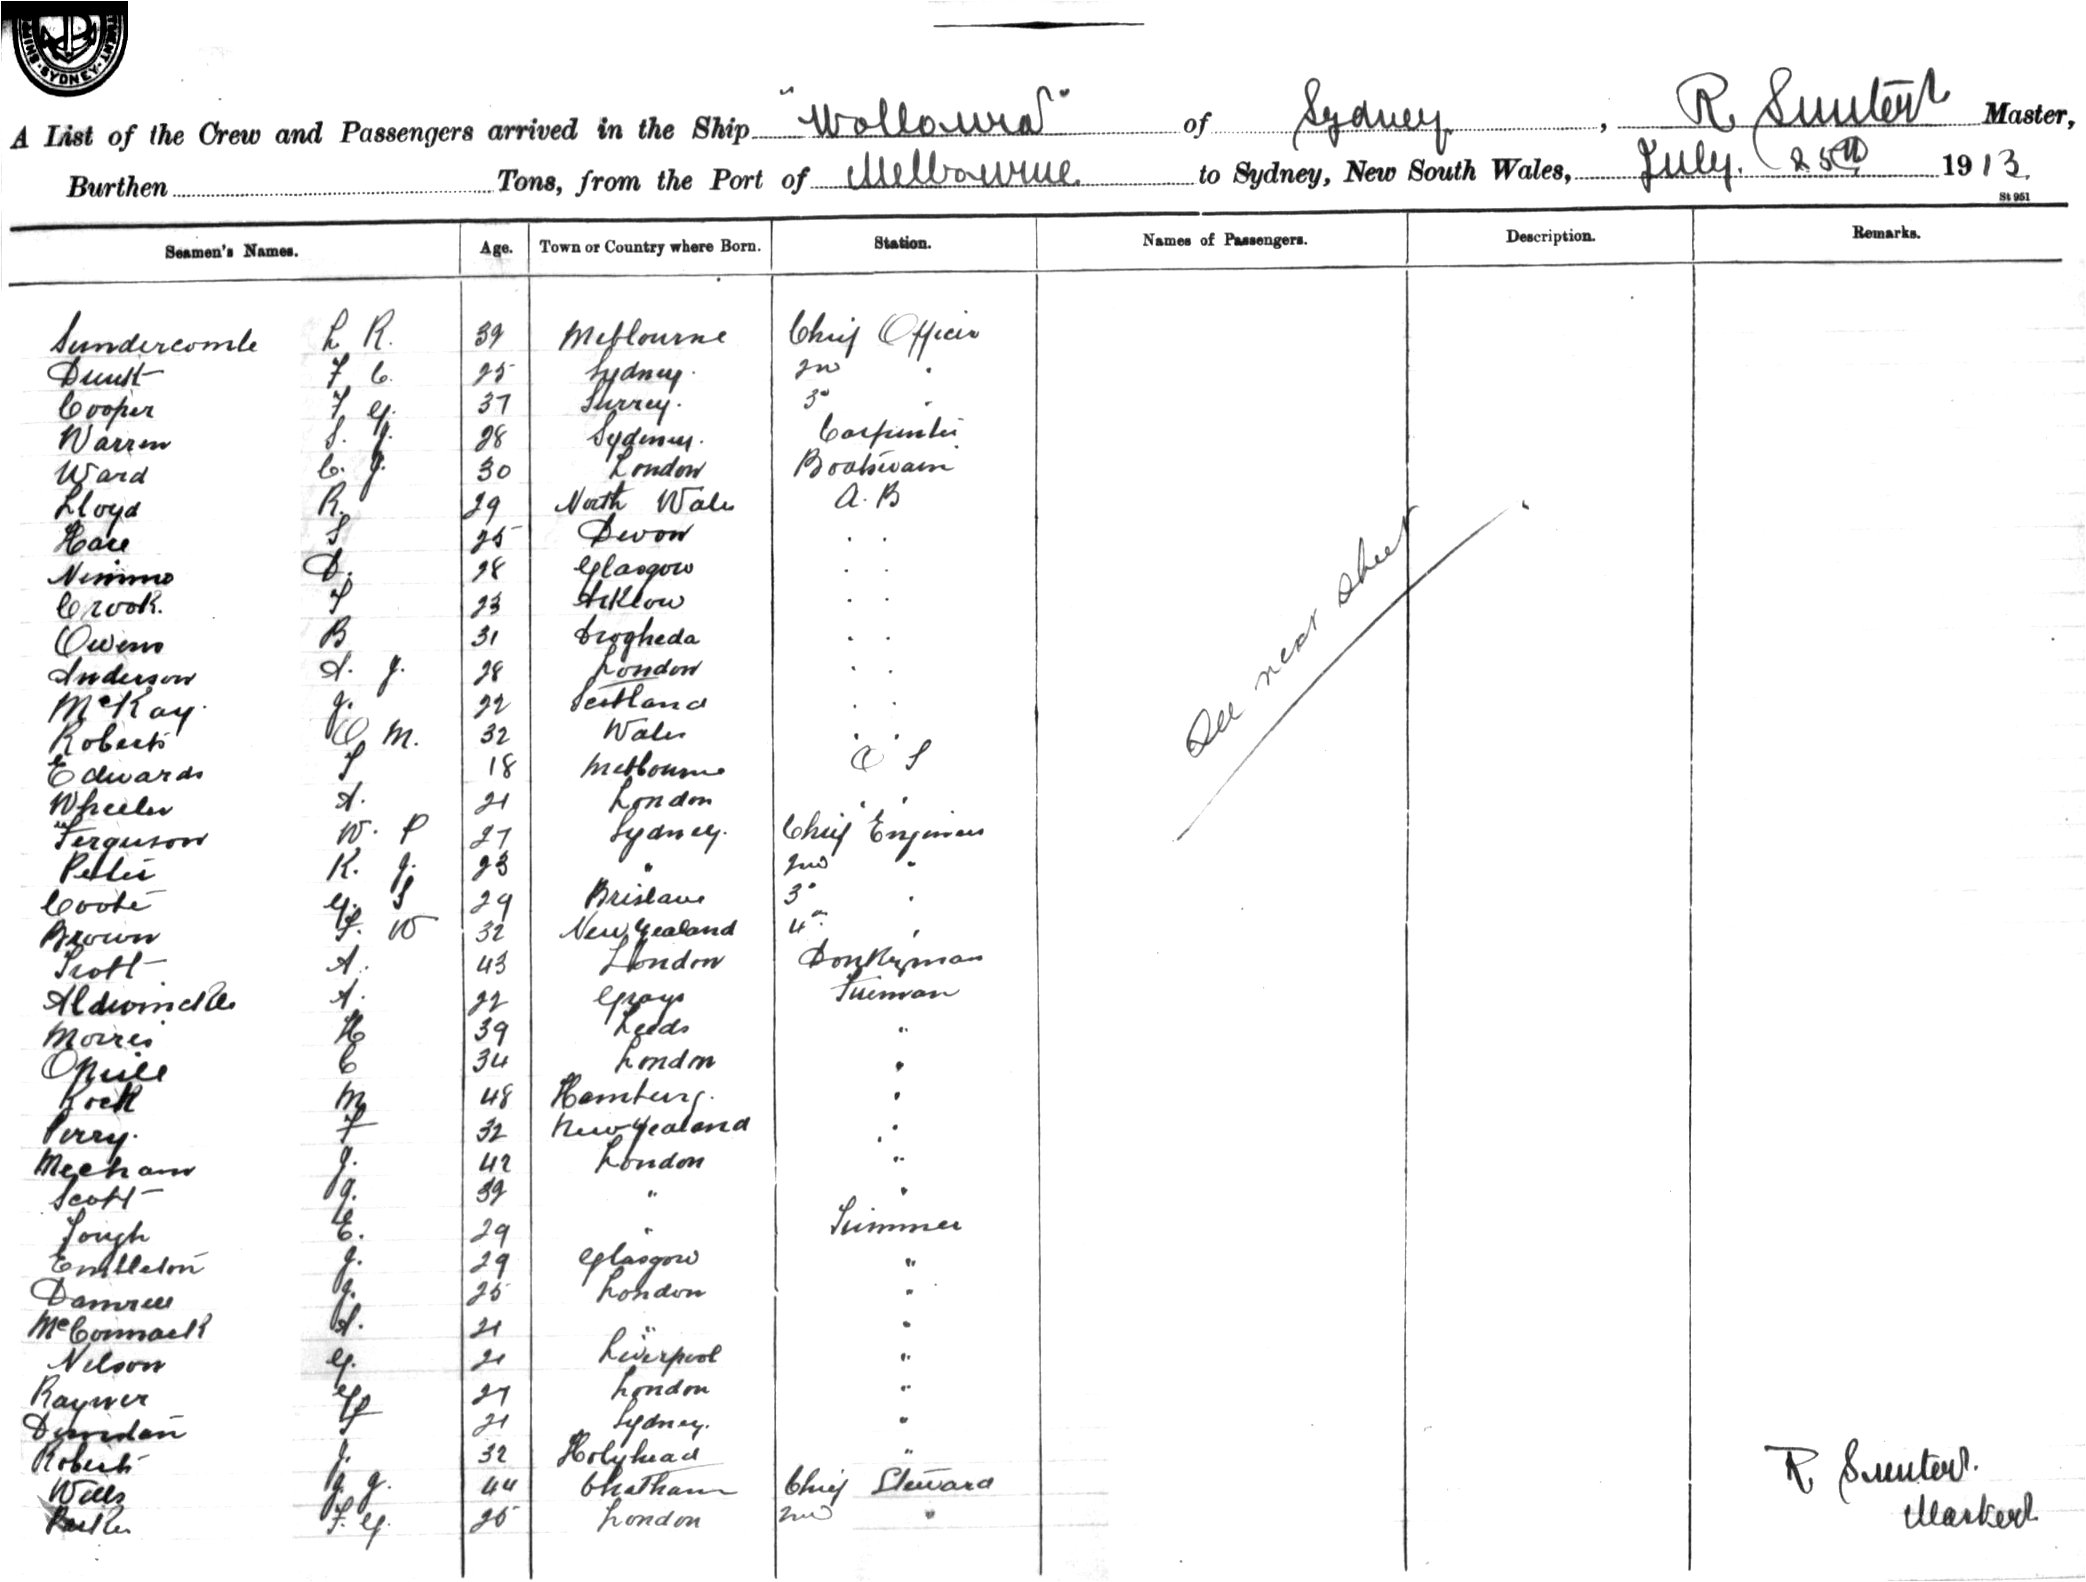 SYDNEY
A List of the Crew and Passengers arrived in the Ship "Wollowra" of Sydney, R Sunter Master,
Burthen Tons, from the Port of Melbourne to Sydney, New South Wales, July. 25th 1913.
St 951
Seamen's Names. Age. Town or Country where Born. Station. Names of Passengers. Description. Remarks.
Sundercombe L R. 39 Melbourne Chief Officer
F C. 25 Sydney. 2nd "
Cooper F. G. 37 Surrey. 3rd "
Warren S. J. 28 Sydney. Carpenter
Ward C. J. 30 London Boatswain
Lloyd R. 29 North Wales A. B
Hare S 25 Devon " "
Nimmo D. 28 Glasgow " "
Crook. T 23 Arklow " "
Owens B 31 Drogheda " "
Anderson A. J. 28 London " "
McKay. J. 22 Scotland " "
Roberts O M. 32 Wales " "
Edwards T 18 Melbourne O S
Wheeler A. 21 London " "
Ferguson W. P 27 Sydney. Chief Engineer
Peter K. J. 23 " 2nd "
Coote G. S 29 Brisbane 3rd "
Brown F. W 32 New Zealand 4th "
Trott A. 43 London Donkeyman
Aldwinckle A. 22 Grays Fireman
Morris H 39 Leeds "
ONeill C 34 London "
M 48 Hamburg. "
Perry. F 32 New Zealand "
Mecham J. 42 London "
Scott J. 39 " "
Tough E. 29 " Trimmer
Embleton J. 29 Glasgow "
Damrell J. 25 London "
McCormack A. 21 " "
Nelson G. 21 Liverpool "
Rayner G 27 London "
F 21 Sydney. "
Roberts J. 32 Holyhead "
Wills J. G. 44 Chatham Chief Steward
F. G. 25 London 2nd "
See next sheet
R Sunter.
Master